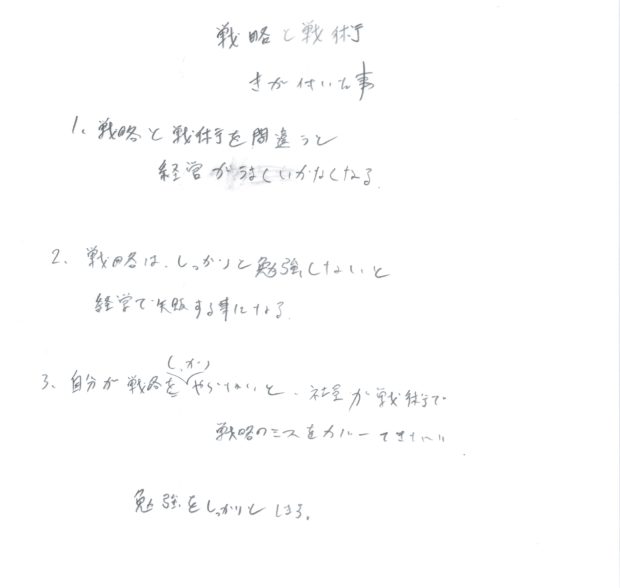 戦略と戦術
きが付いた事
1、戦略と戦術を間違うと
経営がうまくいかなくなる.
2、戦略は、しっかりと勉強しないと
経営で失敗する事になる.
(しか)
3、自分が戦略をやらないと、社員が戦術で
戦略のミスをカバーできない.
勉強をしっかりとしよう。